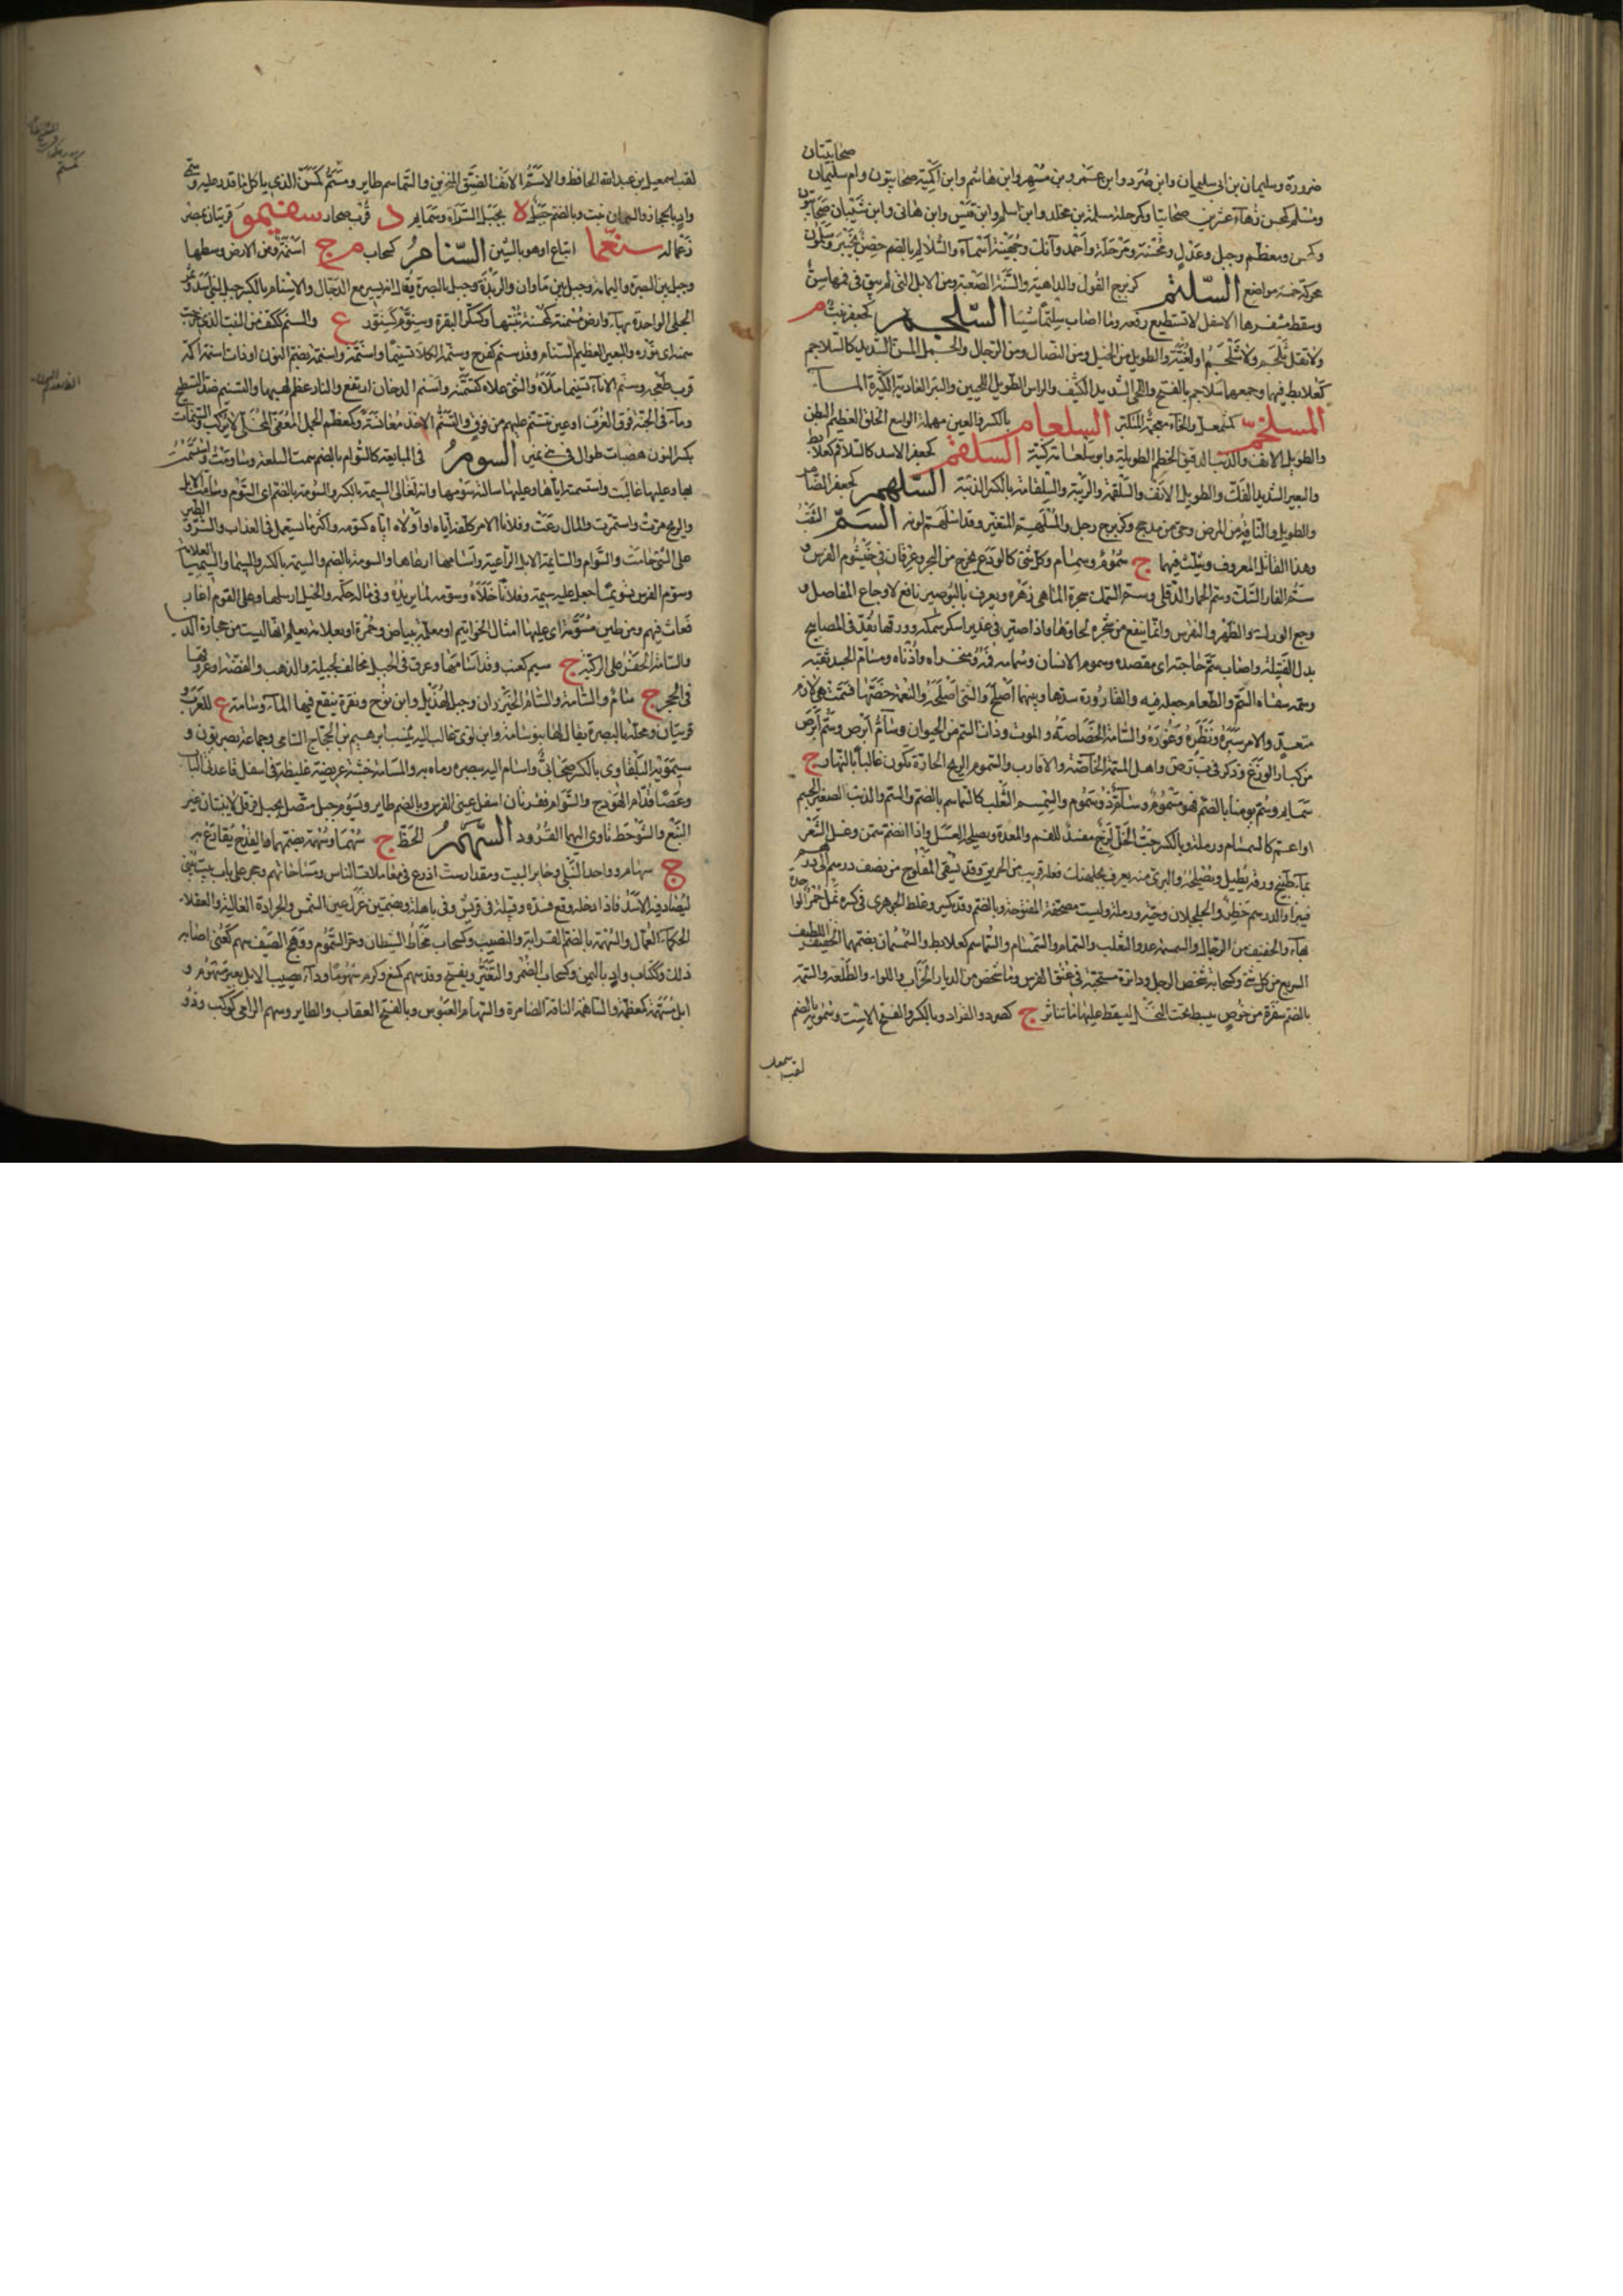 صحابيتان
ضرورة وسليمان بن ابي سليمان وابن صرد وابن عمرو وابن مسهر وابن هاشم وابن اكيمة صحابيون وام سليمان
ومسلم كمحسن زهاء عشرين صحابيا وكمرحلة مسلمة بن مخلد وابن اسلم وابن قيس وابن هاني وابن شيبان صحابيون
وكمحسن ومعظم وجبل وعدل ومحسنة ومرحلة واحمد وآنك وجهينة اسماء والسلالم بالضم حصن بخيبر وسلمون
محركة خمسة مواضع السلتم كزبرج الغول والداهية والسنة الصعبة ومن الابل التي لم يبق في فمها سن
وسقط مشفرها الاسفل لا تستطيع رفعه وما اصاب سلتما شيئا السلجم كجعفر نبت م
ولا تقل ثلجم ولا شلجم او لغية والطويل من الخيل ومن النصال ومن الرجال والجمل المسن الشديد كالسلاجم
كعلابط فيهما وجمعهما سلاجم بالفتح واللحي الشديد الكثيف والراس الطويل اللحيين والبئر العادية الكثيرة الماء
المسلخم كمشمعل والخاء معجمة المتكبر السلعام بالكسر والعين مهملة الواسع الحلق العظيم البطن
والطويل الانف والذئب الدقيق الخطم الطويله وابو سلعامة كنيته السلغم كجعفر الاسد كالسلاقم كعلابط
والبعير الشديد الفك والطويل الانف والسلقمة والريبة والسلقامة بالكسر الذئبة السلهم كجعفر الضامر
والطويل والناقه من المرض وحي من مذحج وكزبرج رجل والمسلهم المتغير وقد اسلهم لونه السم الثقب
وهذا القاتل المعروف ويثلث فيهما ج سموم وسمام وكل شئ كالودع يخرج من البحر وعرقان في خيشوم الفرس و
سم الفار الشك وسم الحمار الدفلى وسم السمك شجرة الماهي زهره ويعرف بالبوصير نافع لاوجاع المفاصل و
وجع الورك والظهر والنقرس وانما ينفع من شجره لحاؤها واذا صير في غدير اسكر سمكه وورقها يقد في المصابيح
بدل الفتيلة واصاب سم حاجته اي مقصده وسموم الانسان وسمامه فمه ومنخراه واذناه ومسام الجسد ثقبه
وسمه سقاه السم والطعام جعله فيه والقارورة سدها وبينهما اصلح والشئ اصلحه والنعمة خصتها فسمت هي لازم
متعد والامر سبره ونظر غوره والسامة الخاصة و الموت وذات السم من الحيوان وسام ابرص وسم ابرص
من كبار الوزغ وذكر في ب ر ص واهل المسمة الخاصة والاقارب والسموم الريح الحارة تكون غالبا بالنهار ج
سمائم وسم يومنا بالضم فهو مسموم
او اعم كالسمسام ورملة وبالكسر حب الحل لزج مفسد للمعدة والفم ويصلحه العسل واذا انهضم سمن وغسل الشعر
بماء طبيخ ورقه يطيله ويصلحه والبري منه يعرف بجلبهنك فعله قريب من الخربق وقد يسقى المفلوج من نصف درهم الى درهم
فيبرا والدرهم خطر والجلجلان وحية ورملة وليست مصحفة المفتوحة وبالضم وقد يكسر وغلط الجوهري في كسره نمل حمر الواحدة
بهاء والخفيف من الرجال والسمسمة عدو الثعلب والسمام والسمسام والسماسم كعلابط والسمسمان بضمهما الخفيف اللطيف
السريع من كل شئ وكسحابة شخص الرجل ودائرة مستحبة في عنق الفرس وما شخص من الديار الخراب واللواء والطلعة والسمة
بالضم سفرة من خوص يبسط تحت النخل ليسقط عليها ما تناثر ج كصرد والقراد وبالكسر والفتح الاست وسمويه بالضم
لقب اسمعيل
لقب اسمعيل بن عبد الله الحافظ والاسم الانف الضيق المنخرين والسماسم طاير ومسم كمسن الذي ياكل ما قدر عليه وسم
واد بالحجاز والسمان نبت وبالضم جبل لا بجبل السراة وسمايم د قرب صحار سفيمو قريتان بمصر
زغما له سنغما اتباع او هو بالشين السنام كسحاب م ج اسنمة ومن الارض وسطها
وجبل بين البصرة واليمامة وجبل بين ماوان والربذة وجبل بالبصرة يقال انه يسير مع الدجال والاسنام بالكسر
الحلي الواحدة بهاء وارض مسنمة كمحسنة تنبتها وكسكر البقرة وسنوم كسنور ع والسنم ككتف من النبت الذي خرجت
سنمته اي نوره والبعير العظيم السنام وقد سنم كفرح وسنمه الكلا تسنيما واسنمه واسنمة بضم النون او ذات اسنمة اكمة
قرب طخفة وسنم الاناء تسنيما ملاه والشئ علاه كتسنمه واسنم الدخان ارتفع والنار عظم لهبها والتسنيم ضد التسطيح
وماء في الجنة فوق الغرف او عين تتسنم عليهم من فوق والتسنم الاخذ مغافصة وكمعظم الجمل المعفى المخلى لا يركب
بكسر النون هضبات طوال في نمير السوم في المبايعة كالسوام بالضم سمت السلعة وساومت واستمت
بها وعليها غاليت واستمته اياها وعليها سالته سومها وانه لغالي السيمة بالكسر والسومة بالضم اي السوم وسامت الابل
والريح مرت واستمرت والمال رعت وفلانا الامر كلفه اياه او اولاه اياه كسومه واكثر ما يستعمل في العذاب والشر والطير
على الشئ حامت والسوام والسائمة الابل الراعية واسامها ارعاها والسومة بالضم والسيمة بالكسر والسيما والسيميا العلامة
وسوم الفرس تسويما جعل عليه سيمة وفلانا خلاه وسومه لما يريده وفي ماله حكمه والخيل ارسلها وعلى القوم اغار
فعاث فيهم ومن طين مسومة اي عليها امثال الخواتيم او معلمة ببياض وحمرة او بعلامة يعلم انها ليست من حجارة الدنيا
والسامة الحفرة على الركية ج سيم كعنب وقد اسامها وعرق في الجبل مخالف لجبلته والذهب والفضة او عروقهما
في الحجر ج سام والسامة والسام الخيزران وجبل لهذيل وابن نوح ونقرة ينقع فيها الماء وسامة ع للعرب و
قريتان ومحلة بالبصرة يقال لها بنو سامة وابن لؤي بن غالب اليه ينسب ابرهيم بن الحجاج السامي وجماعة بصريون و
سيمويه البلقاوي بالكسر صحابي واسام اليه ببصره رماه به والمسامة خشبة عريضة غليظة في اسفل قاعدتي الباب
وعصا قدام الهودج والسوام نقرتان اسفل عيني الفرس وبالضم طاير ويسوم جبل متصل بجبل فرقد لا ينبتان غير
النبع والشوحط تاوي اليهما القرود السهم الحظ ج سهمان وسهمة بضمهما والقدح يقارع به
ج سهام وواحد النبل وجائز البيت ومقدار ست اذرع في معاملات الناس ومساحاتهم وحجر على باب بيت يبنى
ليصاد فيه الاسد فاذا دخله وقع فسده وقبيلة في قريش وفي باهلة وبضمتين غزل عين الشمس والحرارة الغالبة والعقلاء
الحكماء العمال والسهمة بالضم القرابة والنصيب وكسحاب مخاط الشيطان وحر السموم ووهج الصيف سهم كعني اصابه
ذلك وككتاب واد باليمن وكسحاب الضمر والتغير ويفتح وقد سهم كمنع وكرم سهوما وداء يصيب الابل بعير مسهوم و
ابل مسهمة كمعظمة والساهمة الناقة الضامرة والسهام العبوس وبالفتح العقاب والطاير وسهم الرامي كوكب وذو